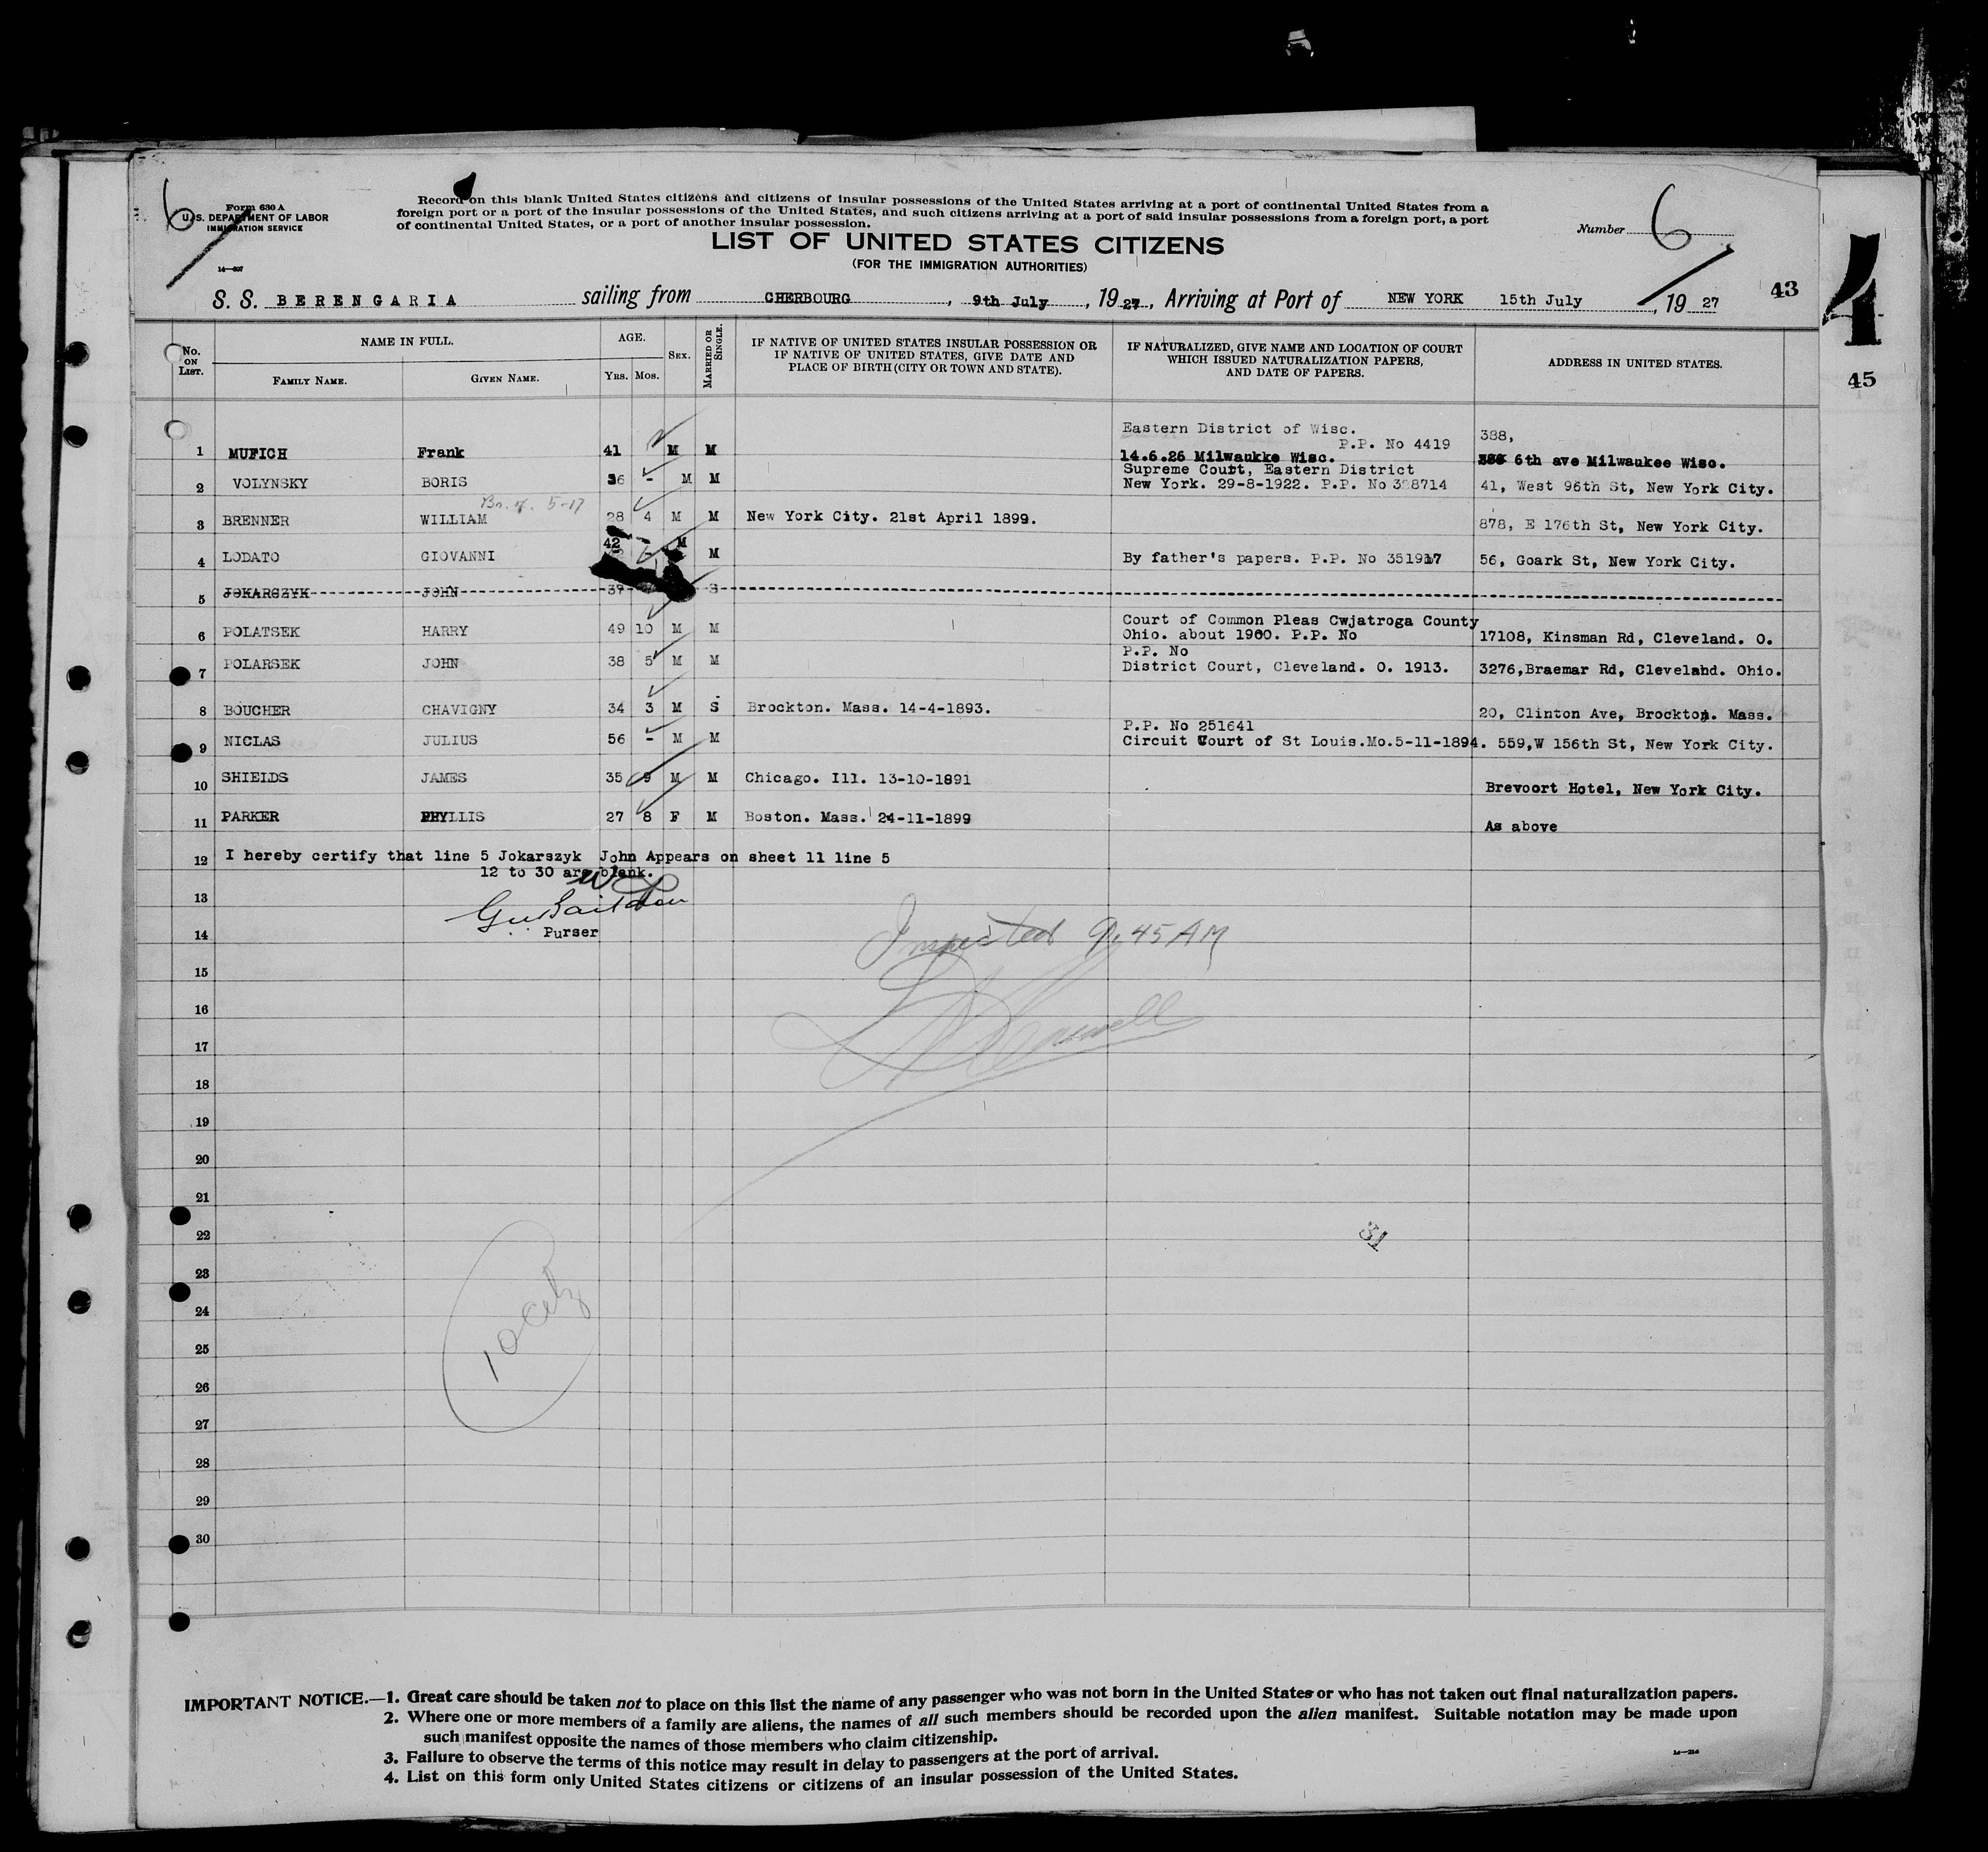 6
Form 630 A
U. S. DEPARTMENT OF LABOR
IMMIGRATION SERVICE
14—607
Record on this blank United States citizens and citizens of insular possessions of the United States arriving at a port of continental United States from a
foreign port or a port of the insular possessions of the United States, and such citizens arriving at a port of said insular possessions from a foreign port, a port
of continental United States, or a port of another insular possession.
Number 6
LIST OF UNITED STATES CITIZENS
(FOR THE IMMIGRATION AUTHORITIES)
S. S. BERENGARIA sailing from CHERBOURG, 9th July, 1927, Arriving at Port of NEW YORK 15th July, 1927
43
4
45
No. ON LIST.
NAME IN FULL.
FAMILY NAME. GIVEN NAME.
AGE.
YRS. MOS.
SEX.
MARRIED OR SINGLE.
IF NATIVE OF UNITED STATES INSULAR POSSESSION OR
IF NATIVE OF UNITED STATES, GIVE DATE AND
PLACE OF BIRTH (CITY OR TOWN AND STATE).
IF NATURALIZED, GIVE NAME AND LOCATION OF COURT
WHICH ISSUED NATURALIZATION PAPERS,
AND DATE OF PAPERS.
ADDRESS IN UNITED STATES.
Eastern District of Wisc.
P.P. No 4419 388,
1 MUFICH Frank 41 M M 14.6.26 Milwaukke Wisc. 6th ave Milwaukee Wisc.
Supreme Court, Eastern District
2 VOLYNSKY BORIS 36 - M M New York. 29-8-1922. P.P. No 328714 41, West 96th St, New York City.
5-17
3 BRENNER WILLIAM 28 4 M M New York City. 21st April 1899. 878, E 176th St, New York City.
4 LODATO GIOVANNI 42 M M By father's papers. P.P. No 351917 56, Goark St, New York City.
5 JOKARCZYK JOHN 37 S
Court of Common Pleas Cwjatroga County
6 POLATSEK HARRY 49 10 M M Ohio. about 1900. P.P. No 17108, Kinsman Rd, Cleveland. O.
P.P. No
7 POLARSEK JOHN 38 5 M M District Court, Cleveland. O. 1913. 3276,Braemar Rd, Cleveland. Ohio.
8 BOUCHER CHAVIGNY 34 3 M S Brockton. Mass. 14-4-1893. 20, Clinton Ave, Brockton. Mass.
P.P. No 251641
9 NICLAS JULIUS 56 - M M Circuit Court of St Louis.Mo.5-11-1894. 559,W 156th St, New York City.
10 SHIELDS JAMES 35 9 M M Chicago. Ill. 13-10-1891 Brevoort Hotel, New York City.
11 PARKER PHYLLIS 27 8 F M Boston. Mass. 24-11-1899 As above
12 I hereby certify that line 5 Jokarszyk John Appears on sheet 11 line 5
12 to 30 are blank.
13
14 Purser
Inspected 9.45 AM
15
16
17
18
19
20
21
22
31
23
24
25
10
26
27
28
29
30
IMPORTANT NOTICE.—1. Great care should be taken not to place on this list the name of any passenger who was not born in the United States or who has not taken out final naturalization papers.
2. Where one or more members of a family are aliens, the names of all such members should be recorded upon the alien manifest. Suitable notation may be made upon
such manifest opposite the names of those members who claim citizenship.
3. Failure to observe the terms of this notice may result in delay to passengers at the port of arrival.
4. List on this form only United States citizens or citizens of an insular possession of the United States.
14—214